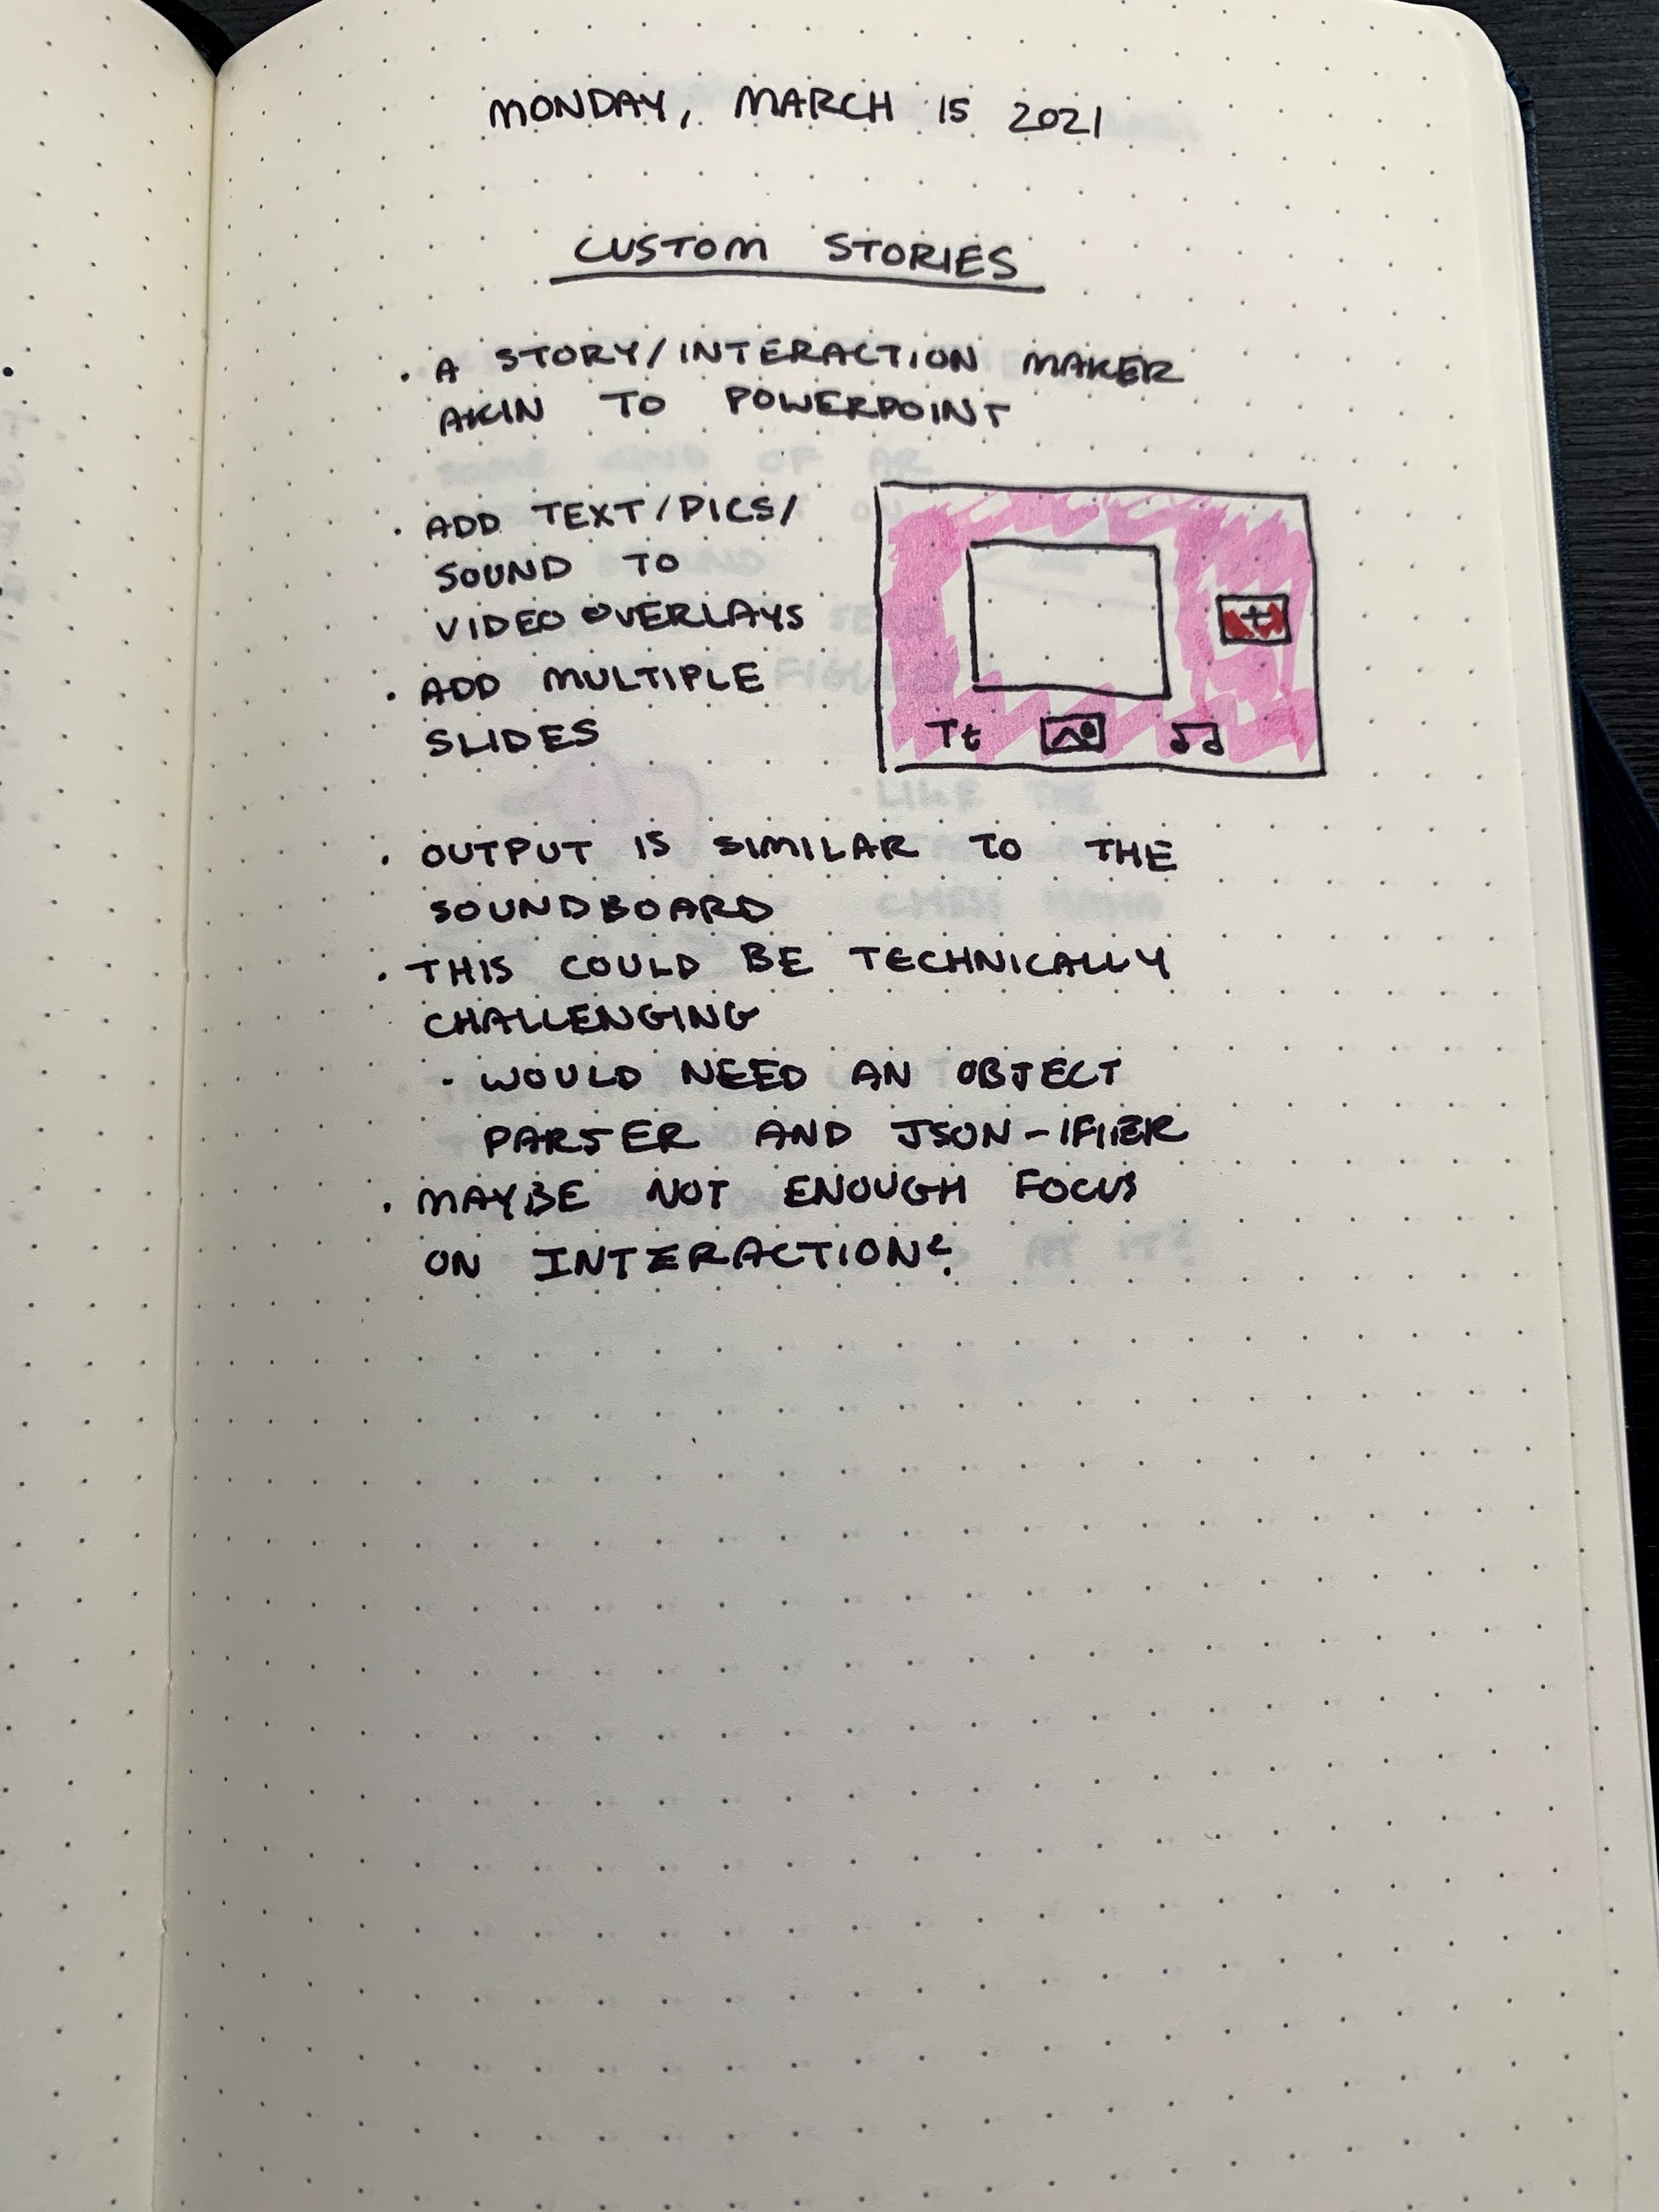 MONDAY, MARCH 15 2021
CUSTOM STORIES
· A STORY/INTERACTION MAKER
AKIN TO POWERPOINT
· ADD TEXT/PICS/
SOUND TO
VIDEO OVERLAYS
· ADD MULTIPLE
SLIDES
+
Tt
· OUTPUT IS SIMILAR TO THE
SOUNDBOARD
· THIS COULD BE TECHNICALLY
CHALLENGING
- WOULD NEED AN OBJECT
PARSER AND JSON-IFIER
· MAYBE NOT ENOUGH FOCUS
ON INTERACTION?